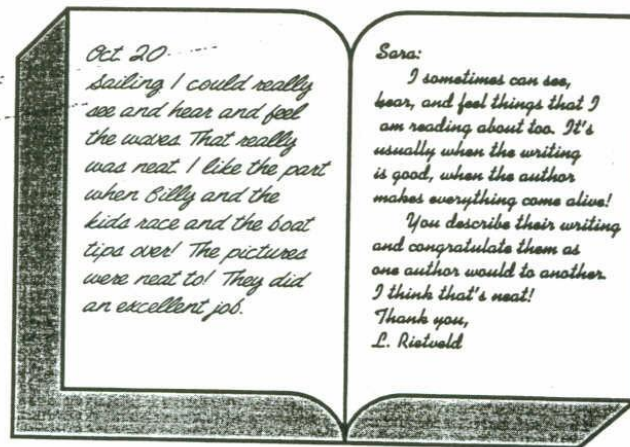 Oct. 20
Sailing I could really
see and hear and feel
the waves. That really
was neat. I like the part
when Billy and the
kids race and the boat
tips over! The pictures
were neat to! They did
an excellent job.
Sara:
I sometimes can see,
hear, and feel things that I
am reading about too. It's
usually when the writing
is good, when the author
makes everything come alive!
You describe their writing
and congratulate them as
one author would to another.
I think that's neat!
Thank you,
L. Rietveld